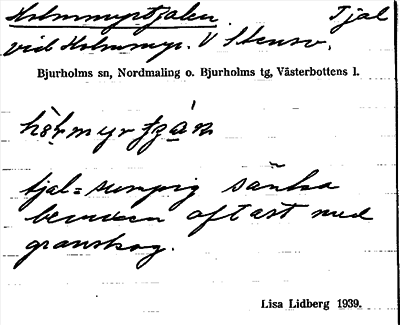 Holmmyrtjalen. Tjal
vid Holmmyr. V Stensv.
Bjurholms sn, Nordmaling o. Bjurholms tg, Västerbottens l.
tjal = sumpig sänka
bevuxen oftast med
granskog.
Lisa Lidberg 1939.